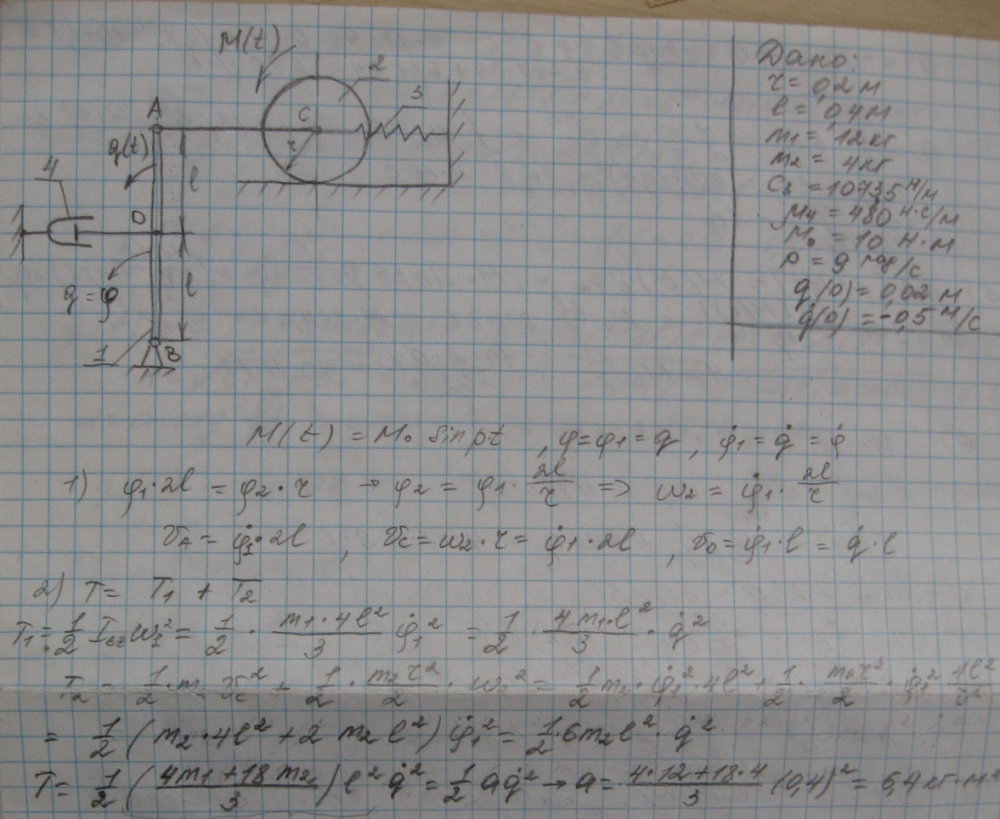 M(t)
2
3
A
C
r
q(t)
l
4
D
l
q = φ
1
B
Дано:
r = 0,2 м
l = 0,4 м
m1 = 12 кг
m2 = 4 кг
C3 = 10735 Н/м
μ4 = 480 Н·с/м
M0 = 10 Н·м
p = 9 рад/с
q(0) = 0,02 м
q̇(0) = -0,5 м/с
M(t) = M0 sin pt , φ = φ1 = q , φ̇1 = q̇ = φ̇
1) φ1·2l = φ2·r → φ2 = φ1 · 2l/r ⇒ ω2 = φ̇1 · 2l/r
VA = φ̇1·2l , VC = ω2·r = φ̇1·2l , VD = φ̇1·l = q̇·l
2) T = T1 + T2
T1 = 1/2 ω1² = 1/2 · m1·4l²/3 φ̇1² = 1/2 · 4m1l²/3 · q̇²
T2 = 1/2 · m2 VC² + 1/2 · m2r²/2 · ω2² = 1/2 m2 · φ̇1² · 4l² + 1/2 · m2r²/2 · φ̇1² 4l²/r²
= 1/2 (m2·4l² + 2 m2l²) φ̇1² = 1/2·6m2l² · q̇²
T = 1/2 (4m1 + 18m2/3) l² q̇² = 1/2 aq̇² → a = 4·12+18·4/3 (0,4)² = 6,4 кг·м²